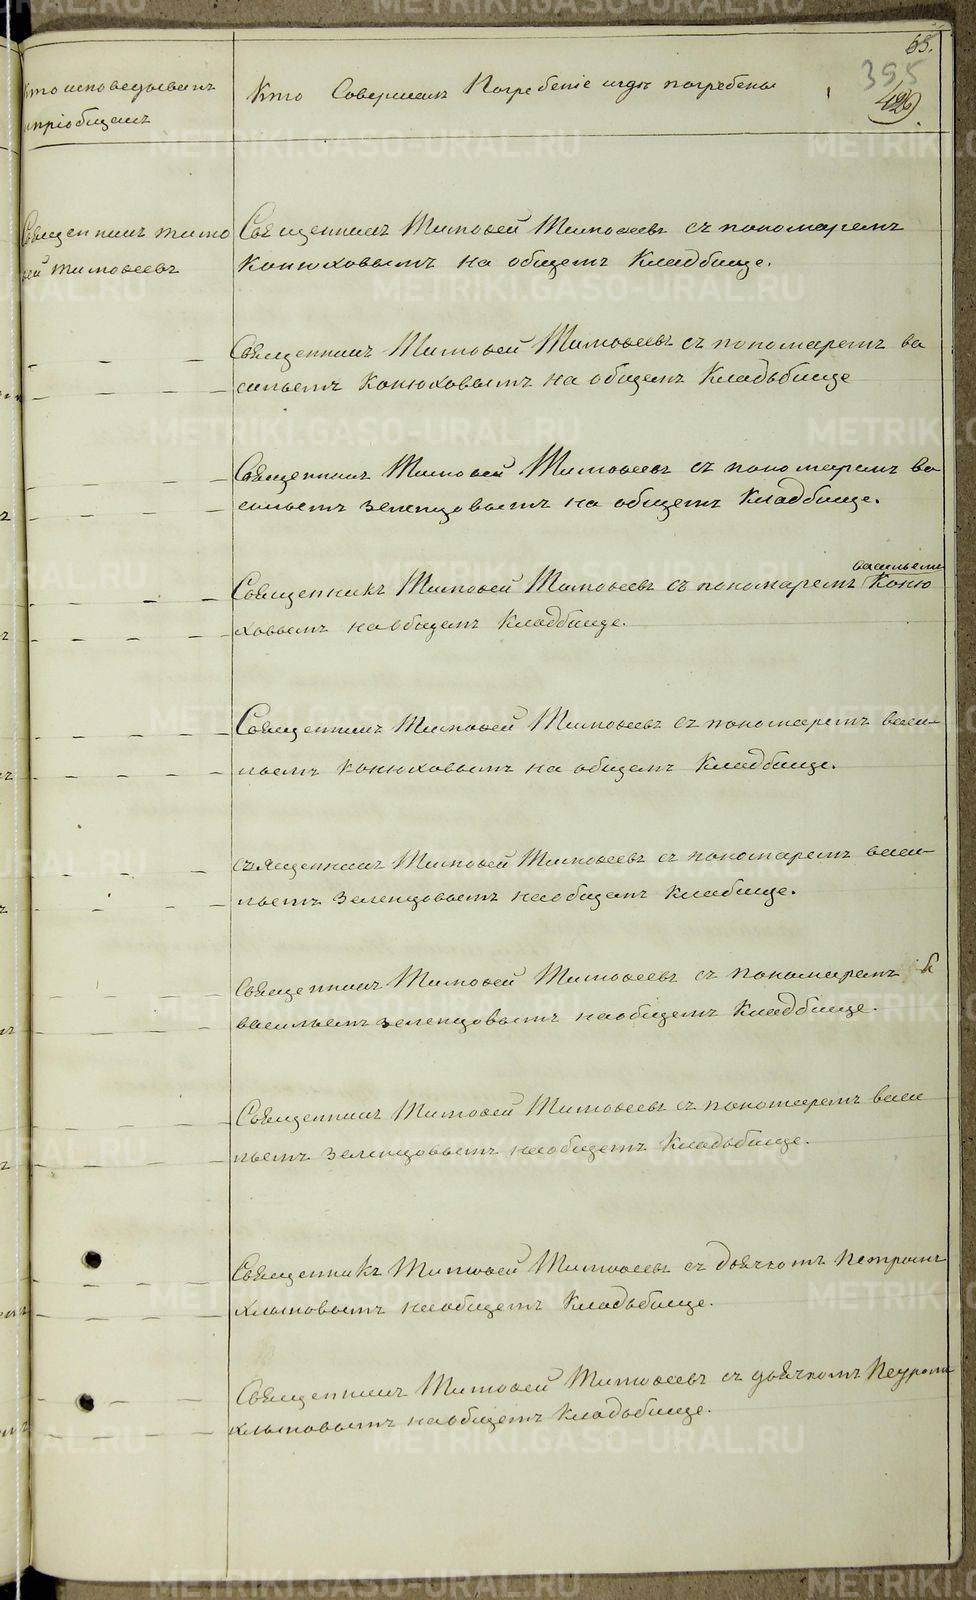 65.
395
429
Кто исповедывалъ
и пріобщалъ
Кто Совершалъ Погребеніе игдѣ погребены
Священникъ тимо
ѳей тимоѳеевъ
Священникъ Тимоѳей Тимоѳеевъ съ пономаремъ
Конюховымъ на общемъ Кладбище.
Священникъ Тимоѳей Тимоѳеевъ съ пономаремъ ва
сильемъ Конюховымъ на общемъ Кладьбище
Священникъ Тимоѳей Тимоѳеевъ съ пономаремъ ва
сильемъ зеленцовымъ на общемъ Кладбище.
васильемъ
Священникъ Тимоѳей Тимоѳеевъ съ пономаремъ Коню
ховымъ наобщемъ Кладбище.
Священникъ Тимоѳей Тимоѳеевъ съ пономаремъ васи-
льемъ Конюховымъ на общемъ Кладбище.
священникъ Тимоѳей Тимоѳеевъ съ пономаремъ васи-
льемъ Зеленцовымъ наобщемъ Клабище.
Священникъ Тимоѳей Тимоѳеевъ съ пономаремъ
васильемъ зеленцовымъ наобщемъ Кладбище.
Священникъ Тимоѳей Тимоѳеевъ съ пономаремъ васи
льемъ Зеленцовымъ наобщемъ Кладьбище.
Священникъ Тимоѳей Тимоѳеевъ съ дьячкомъ Петромъ
хлыновымъ наобщемъ Кладьбище.
Священникъ Тимоѳей Тимоѳеевъ съ дьячкомъ Петромъ
хлыновымъ наобщемъ Кладьбище.
METRIKI.GASO-URAL.RU